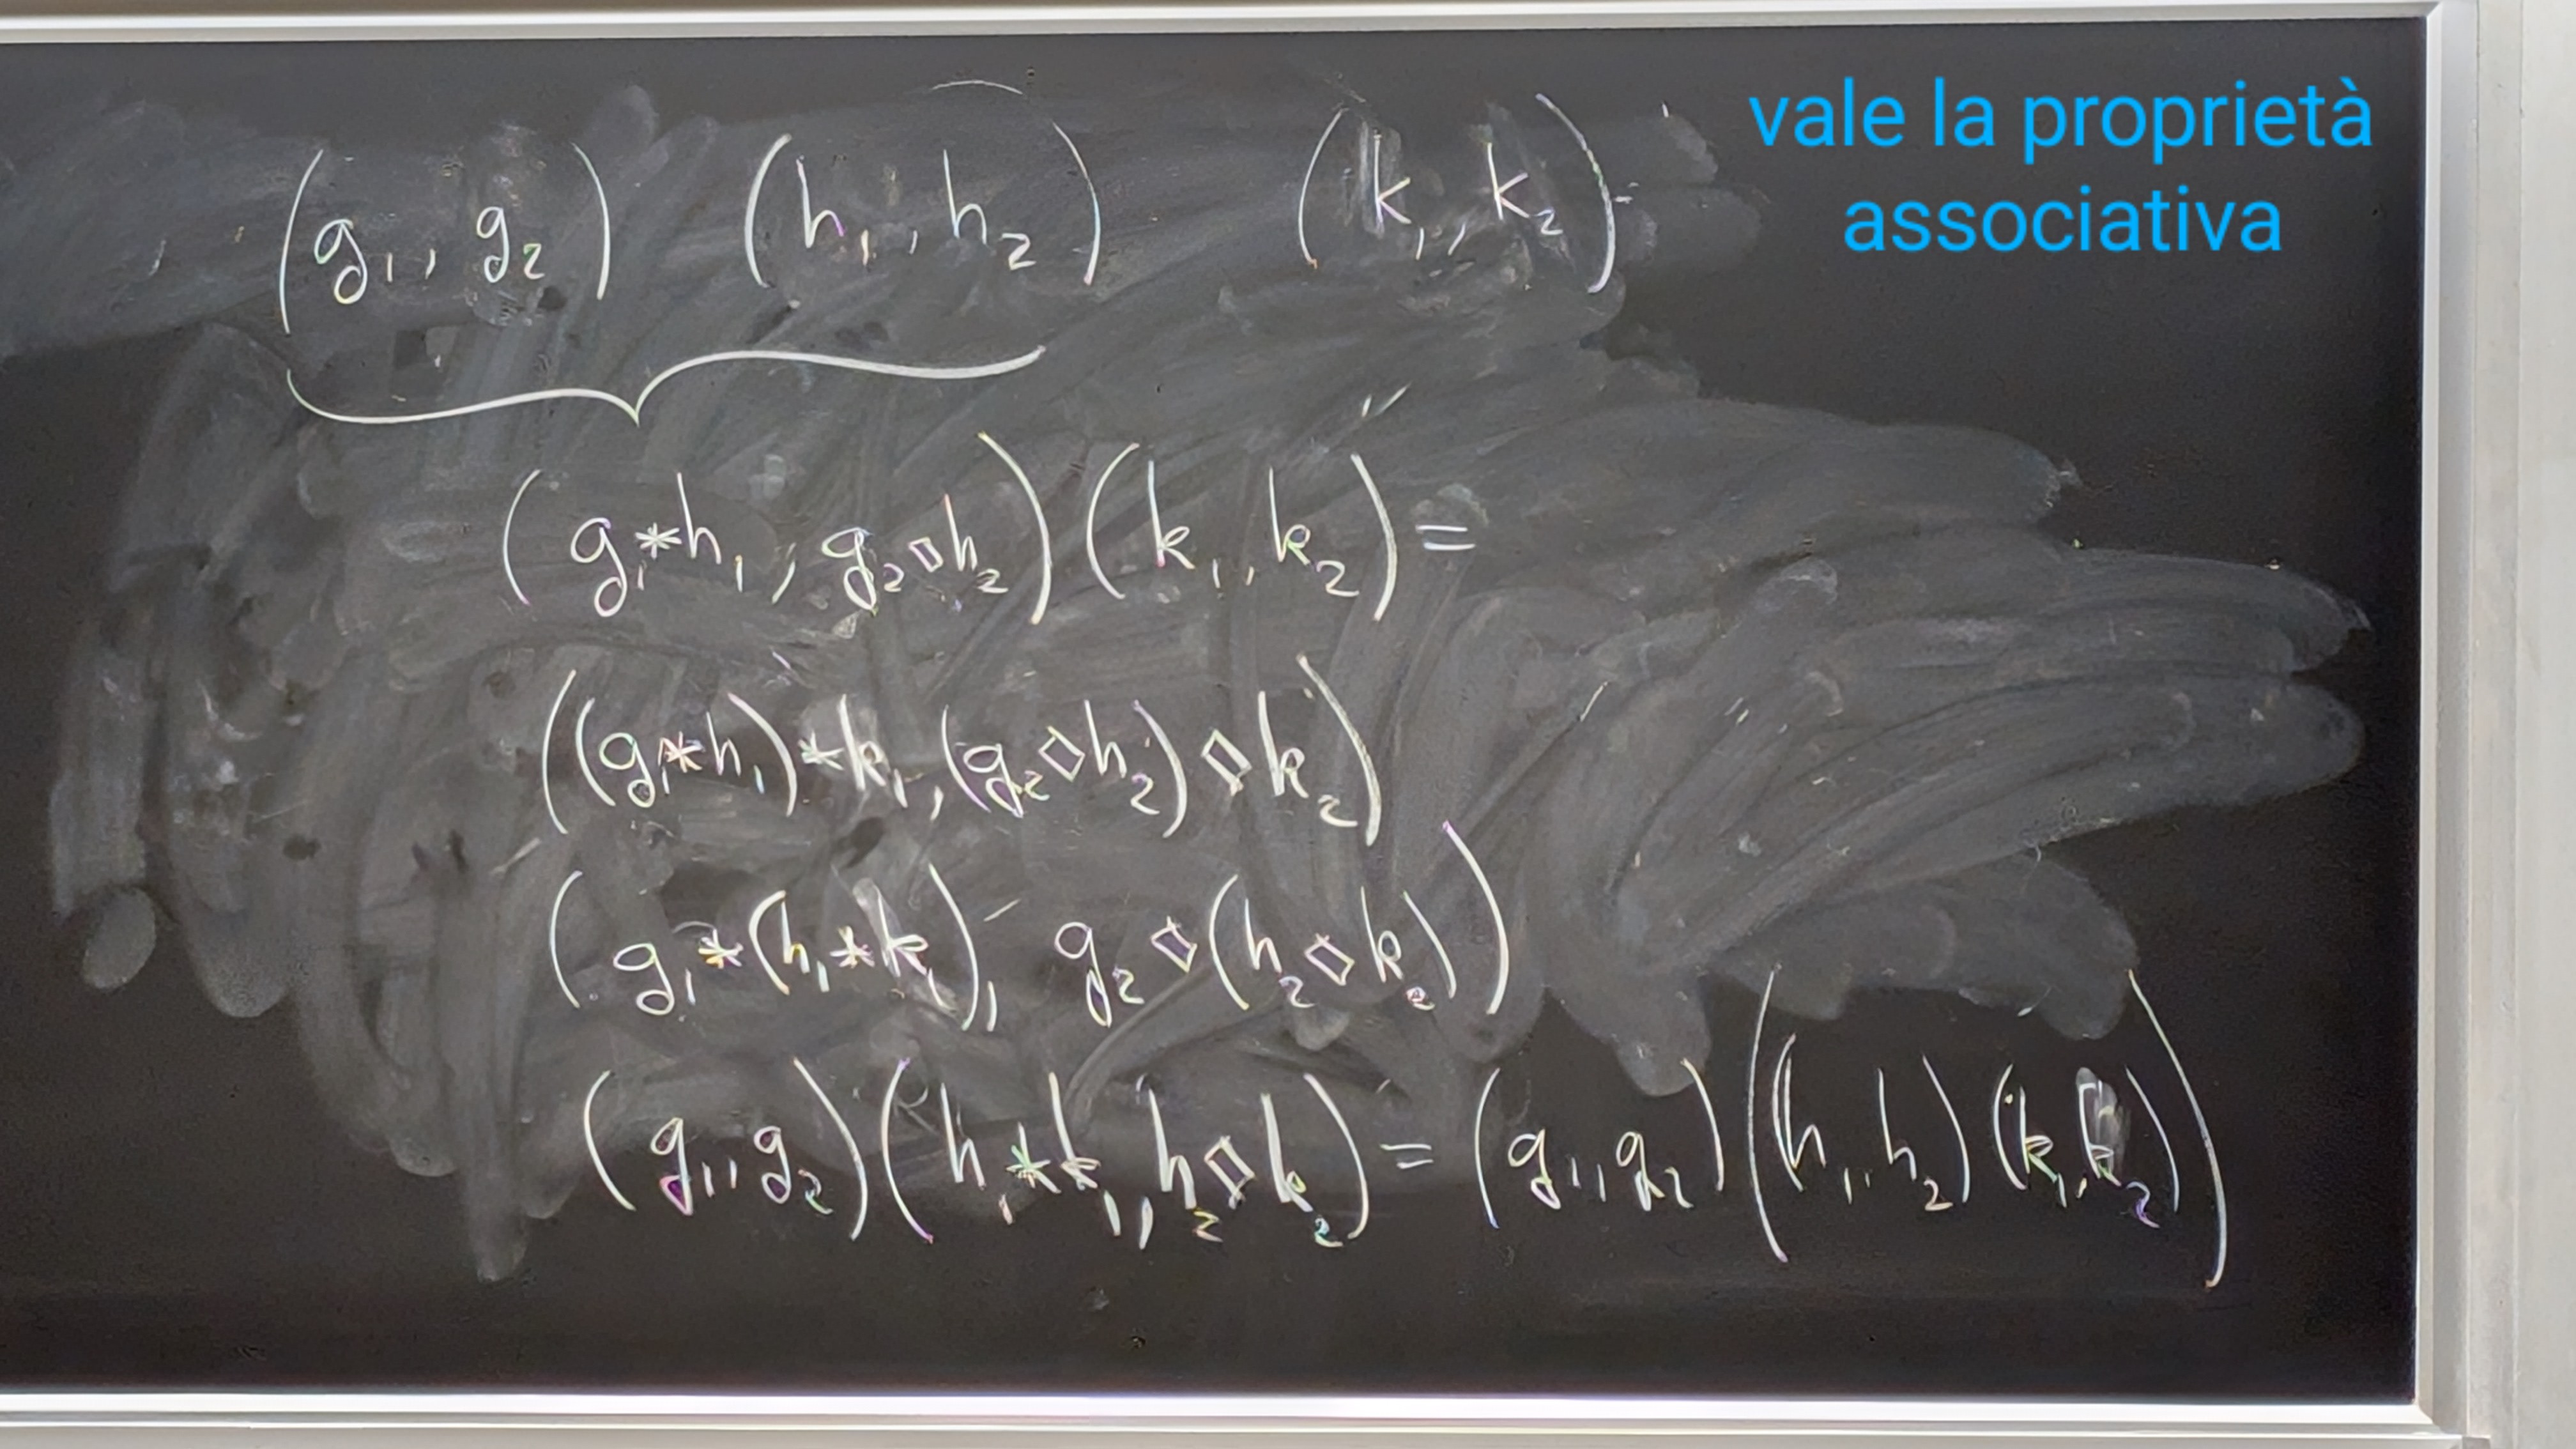 vale la proprietà
associativa
(g₁, g₂) (h₁, h₂) (k₁, k₂) =
(g₁*h₁, g₂◇h₂)(k₁, k₂) =
((g₁*h₁)*k₁, (g₂◇h₂)◇k₂)
(g₁*(h₁*k₁), g₂◇(h₂◇k₂))
(g₁, g₂)(h₁*k₁, h₂◇k₂) = (g₁, g₂)((h₁, h₂)(k₁, k₂))